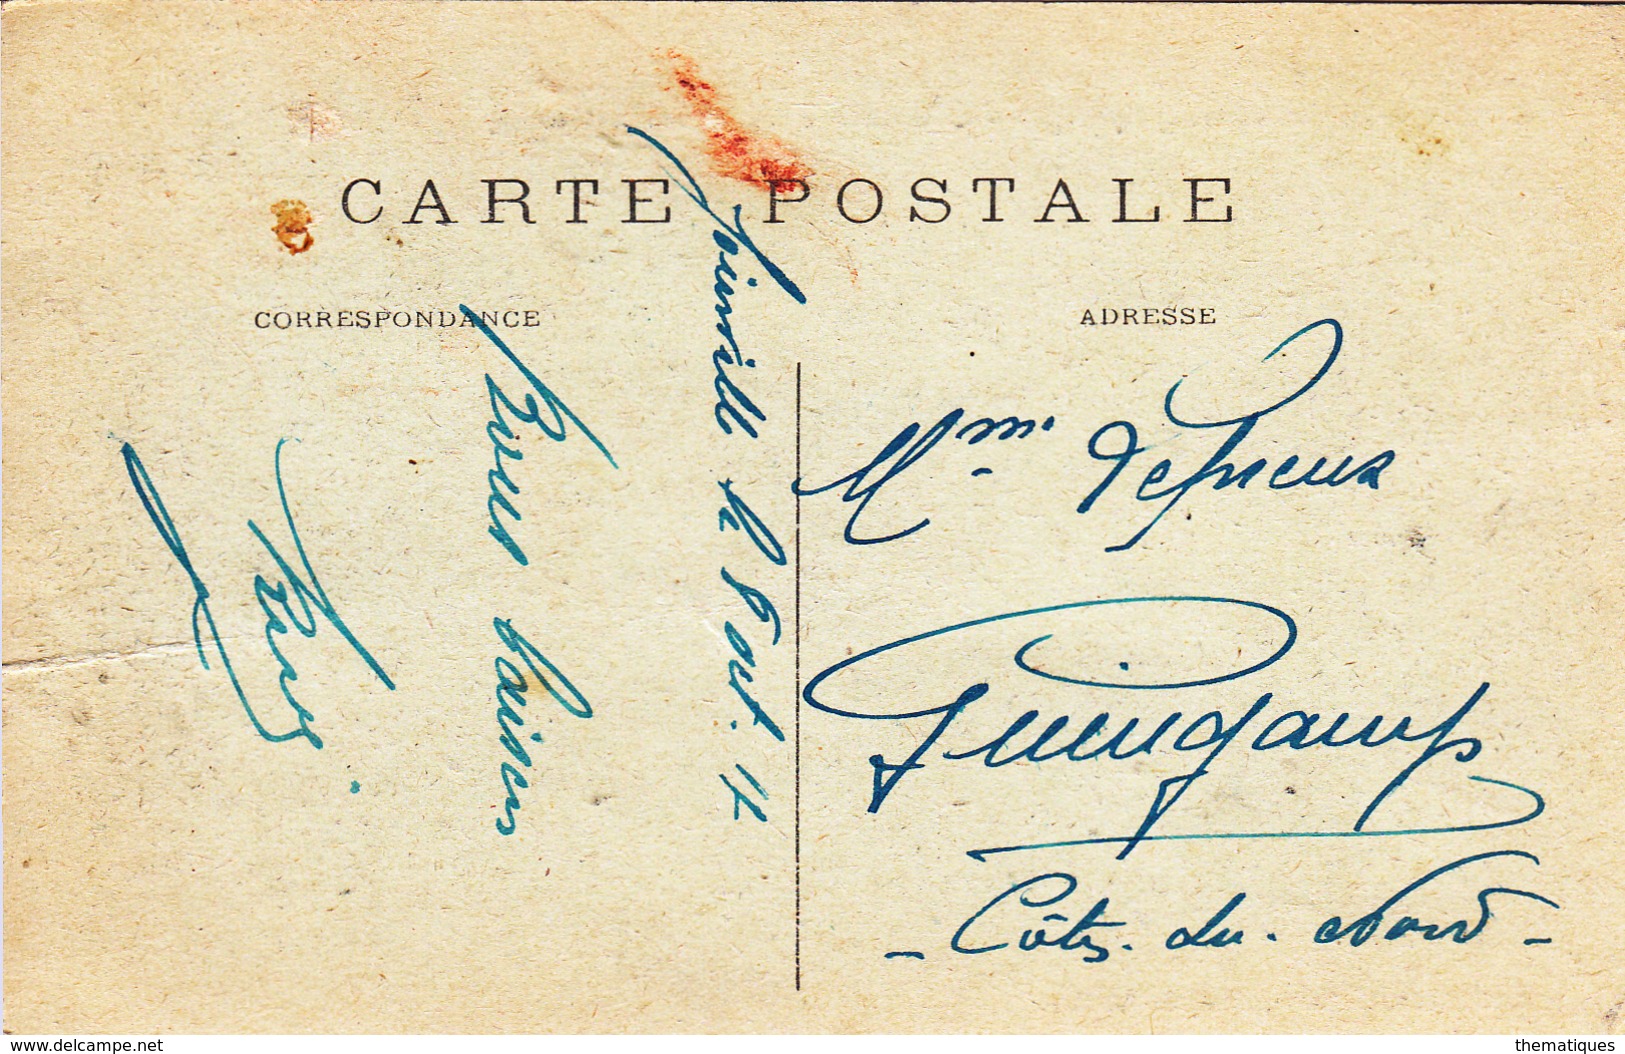 CARTE POSTALE
CORRESPONDANCE
ADRESSE
Joinville le 8 oct. 14
Bons baisers
Mme
Guingamp
- Côtes-du-Nord -
www.delcampe.net
thematiques